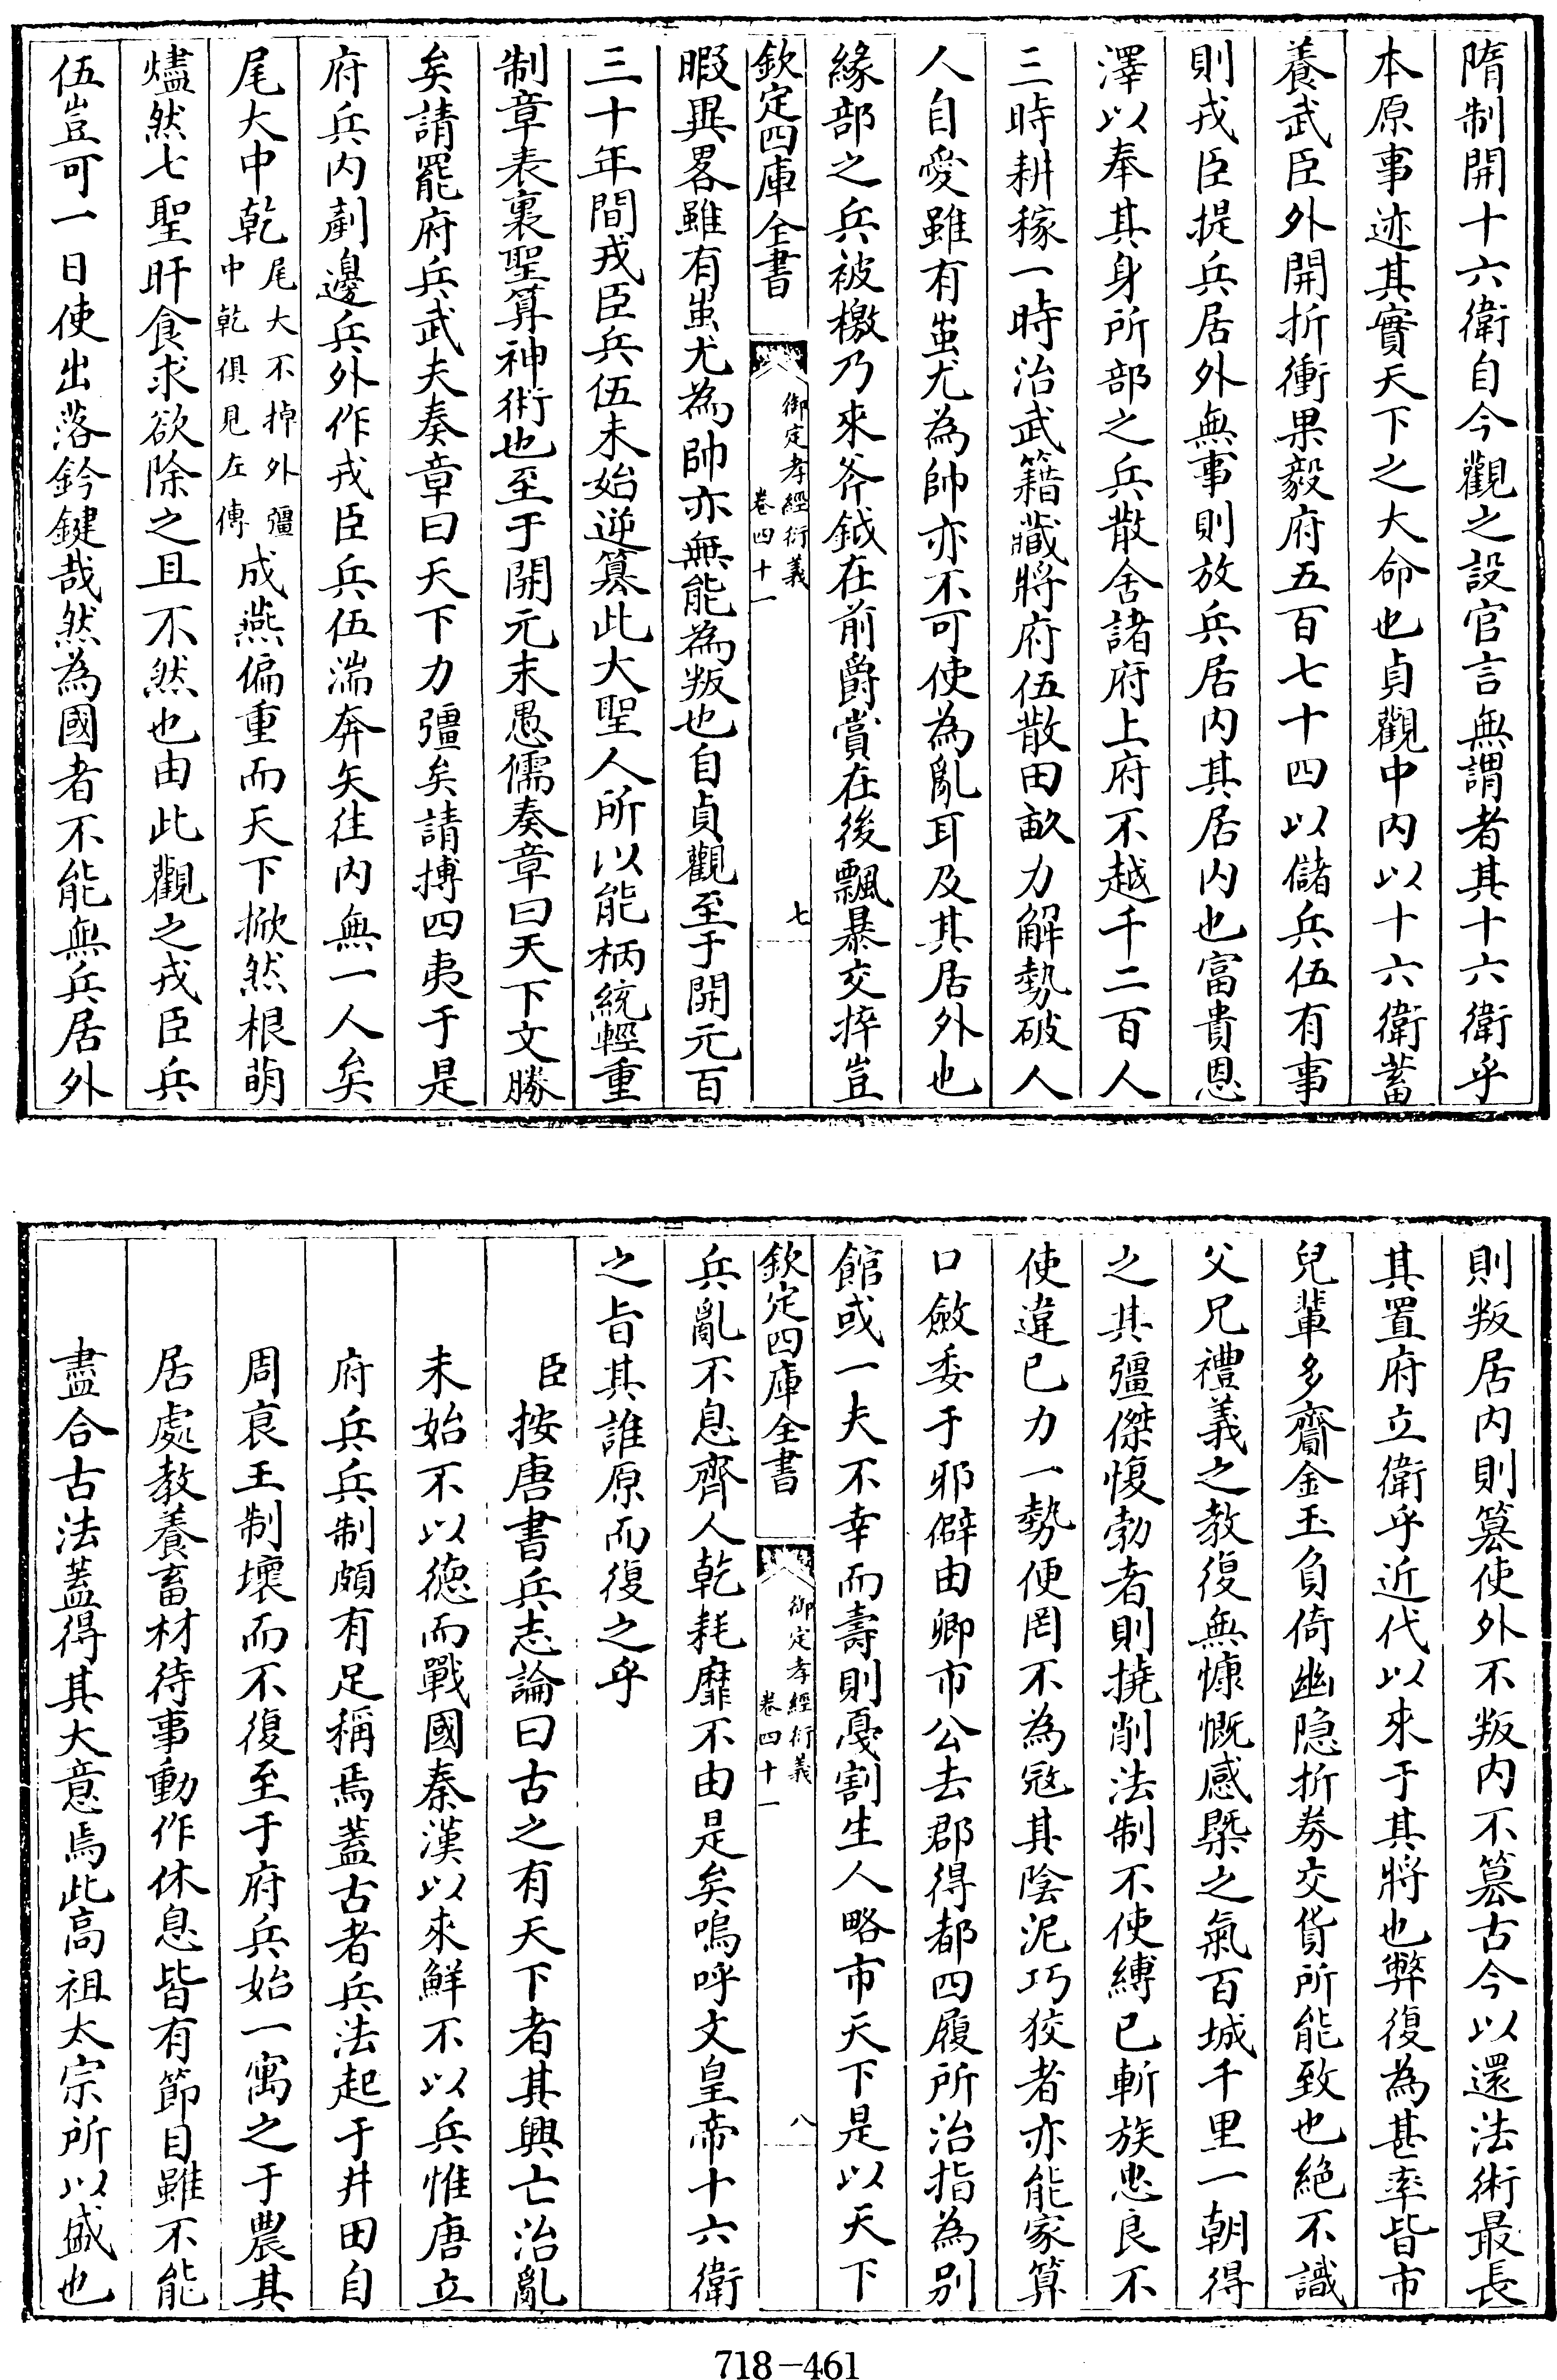 隋制開十六衛自今觀之設官言無謂者其十六衛乎
本原事迹其實天下之大命也貞觀中内以十六衛蓄
養武臣外開折衝果毅府五百七十四以儲兵伍有事
則戎臣提兵居外無事則放兵居内其居内也富貴恩
澤以奉其身所部之兵散舍諸府上府不越千二百人
三時耕稼一時治武籍藏將府伍散田畝力解勢破人
人自愛雖有蚩尤為帥亦不可使為亂耳及其居外也
緣部之兵被檄乃來斧鉞在前爵賞在後飄暴交捽豈
欽定四庫全書
御定孝經衍義
卷四十一
七
暇異畧雖有蚩尤為帥亦無能為叛也自貞觀至于開元百
三十年間戎臣兵伍未始逆篡此大聖人所以能柄統輕重
制章表裏聖算神術也至于開元末愚儒奏章曰天下文勝
矣請罷府兵武夫奏章曰天下力彊矣請搏四夷于是
府兵内剷邊兵外作戎臣兵伍湍奔矢往内無一人矣
尾大中乾尾大不掉外彊中乾俱見左傳成燕偏重而天下掀然根萌
燼然七聖旰食求欲除之且不然也由此觀之戎臣兵
伍豈可一日使出落鈐鍵哉然為國者不能無兵居外
則叛居内則篡使外不叛内不篡古今以還法術最長
其置府立衛乎近代以來于其將也弊復為甚率皆市
兒輩多齎金玉負倚幽隐折券交貨所能致也絶不識
父兄禮義之教復無慷慨感槩之氣百城千里一朝得
之其彊傑愎勃者則撓削法制不使縛已斬族忠良不
使違已力一勢便罔不為冦其陰泥巧狡者亦能家算
口斂委于邪僻由卿市公去郡得都四履所治指為别
館或一夫不幸而壽則戞割生人略市天下是以天下
欽定四庫全書
御定孝經衍義
卷四十一
八
兵亂不息齊人乾耗靡不由是矣嗚呼文皇帝十六衛
之旨其誰原而復之乎
臣按唐書兵志論曰古之有天下者其興亡治亂
未始不以德而戰國秦漢以來鮮不以兵惟唐立
府兵兵制頗有足稱焉蓋古者兵法起于井田自
周衰王制壞而不復至于府兵始一寓之于農其
居處教養畜材待事動作休息皆有節目雖不能
盡合古法蓋得其大意焉此高祖太宗所以盛也
718-461